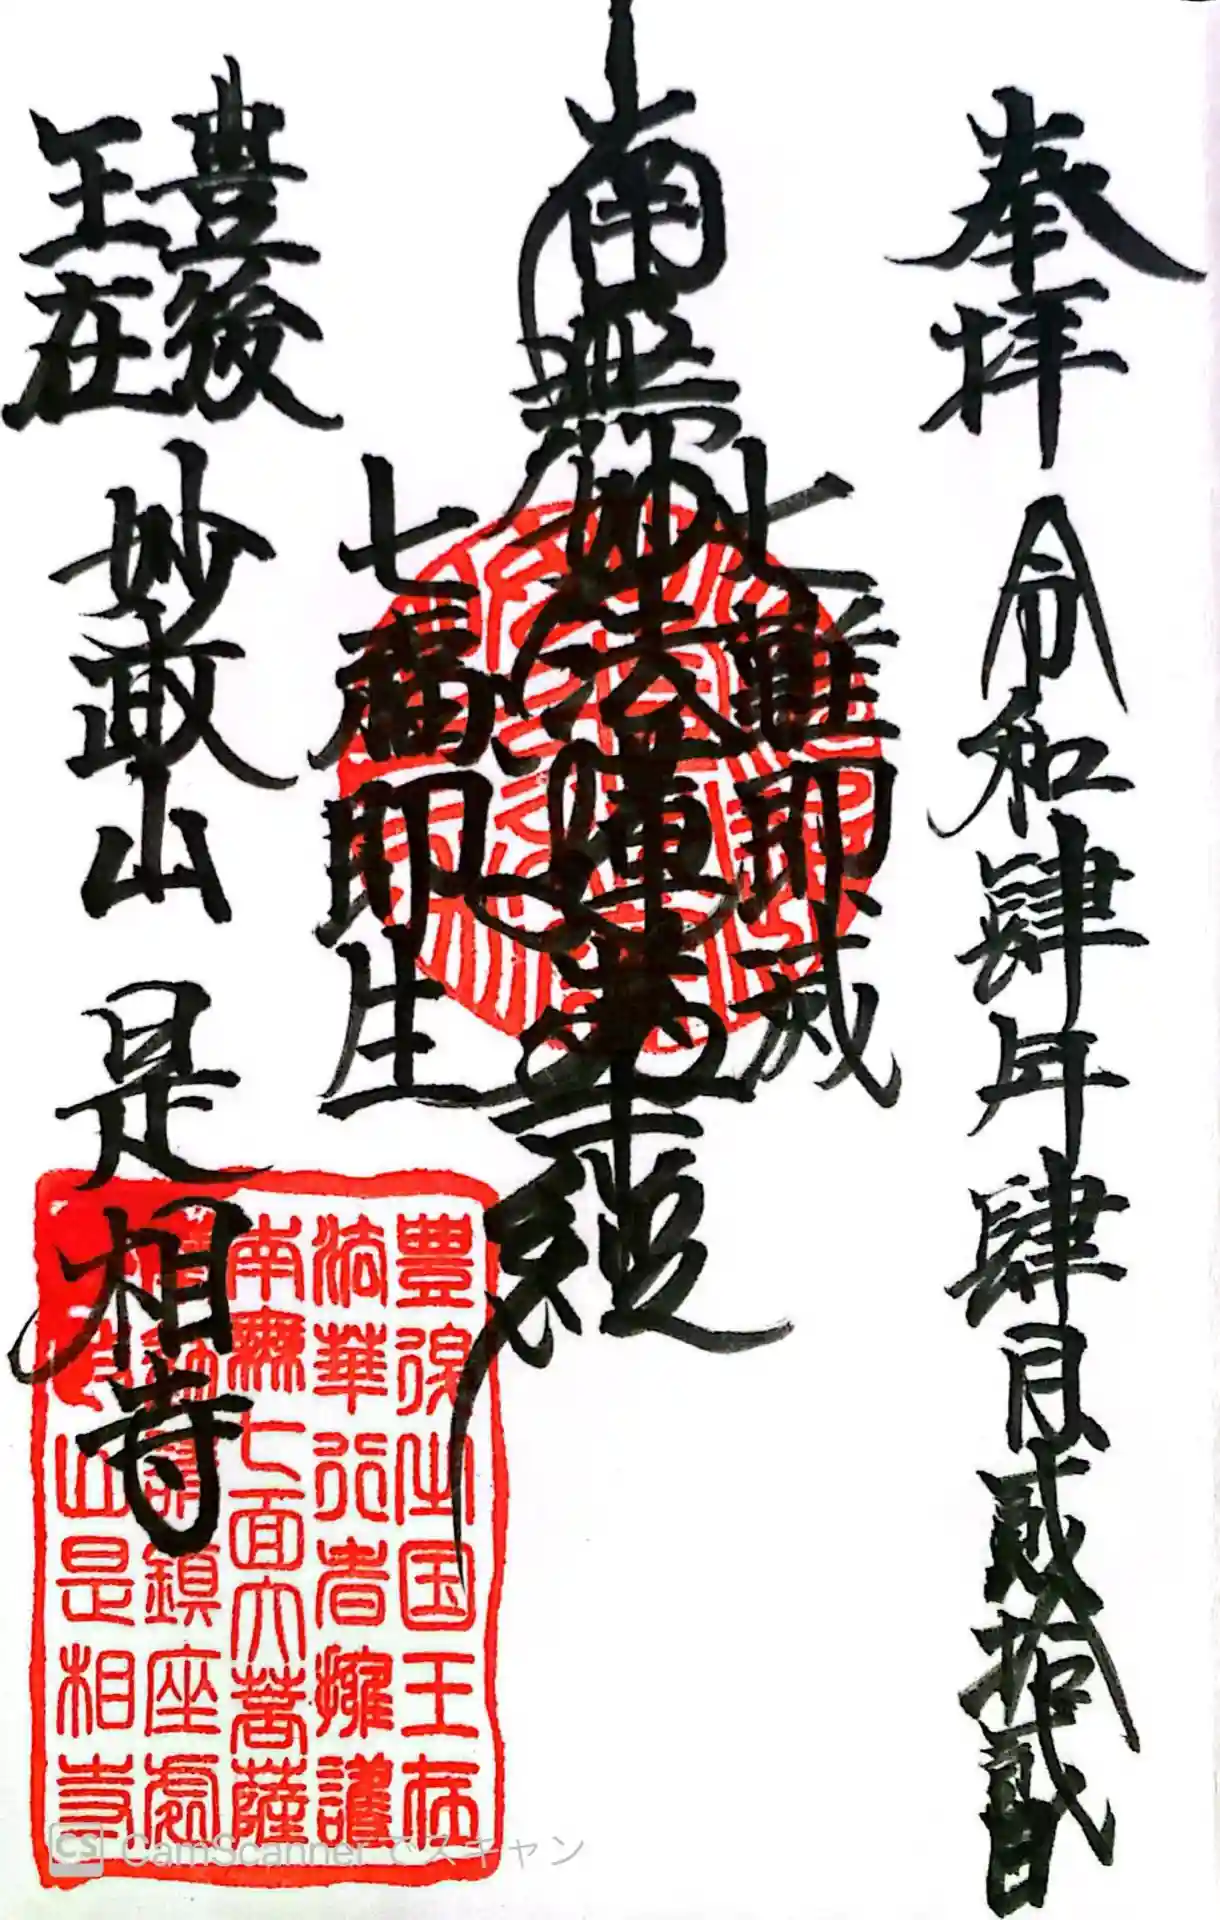 奉拝 令和肆年肆月貳拾貳日
七難即滅
南無妙法蓮華経
七福即生
豊後
王在
妙敢山 是相寺
豊後之国王在
法華行者擁護
南無七面大菩薩
鎮座処
山是相寺
CS CamScannerでスキャン